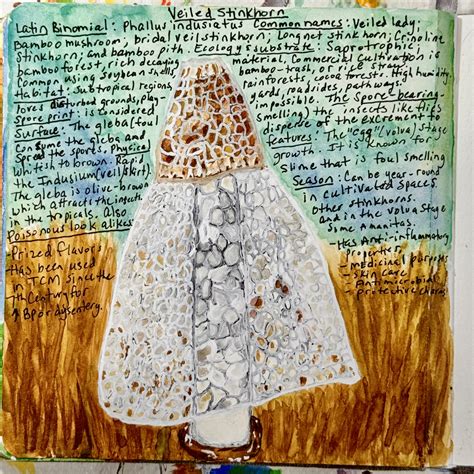 Veiled Stinkhorn
Latin Binomial: Phallus indusiatus Common names: Veiled lady,
Bamboo mushroom, bridal veil stinkhorn, Long net stinkhorn, Crinoline
stinkhorn, and bamboo pith. Ecology & substrate: Saprotrophic;
bamboo forest, rich decaying material. Commercial cultivation is
common using soybean shells, bamboo-trash, or rice straw.
Habitat: Subtropical regions, rainforests, cocoa forests. High humidity.
loves disturbed grounds, play yards, roadsides, pathways.
Spore print: is considered impossible. The Spore-bearing-
Surface: The gleba (foul smelling) the insects like flies
Consume the gleba and disperse of the excrement to
Spread the spores. Physical features: The "egg" (volva) stage
Whitish to brown. Rapid growth. It is known for
the Indusium (veil/skirt). slime that is foul smelling
The gleba is olive-brown Season: Can be year-round
which attracts the insects in cultivated spaces
in the tropicals. Also other stinkhorns
Poisonous look alikes and in the volva stage
some Amanitas.
-Prized Flavor
Has been used
in TCM since the
7th Century for
↑ BP or dysentery.
-Has Anti-inflammatory
Properties
-medicinal purposes
-skin care
-Antimicrobial
-Protective Charms